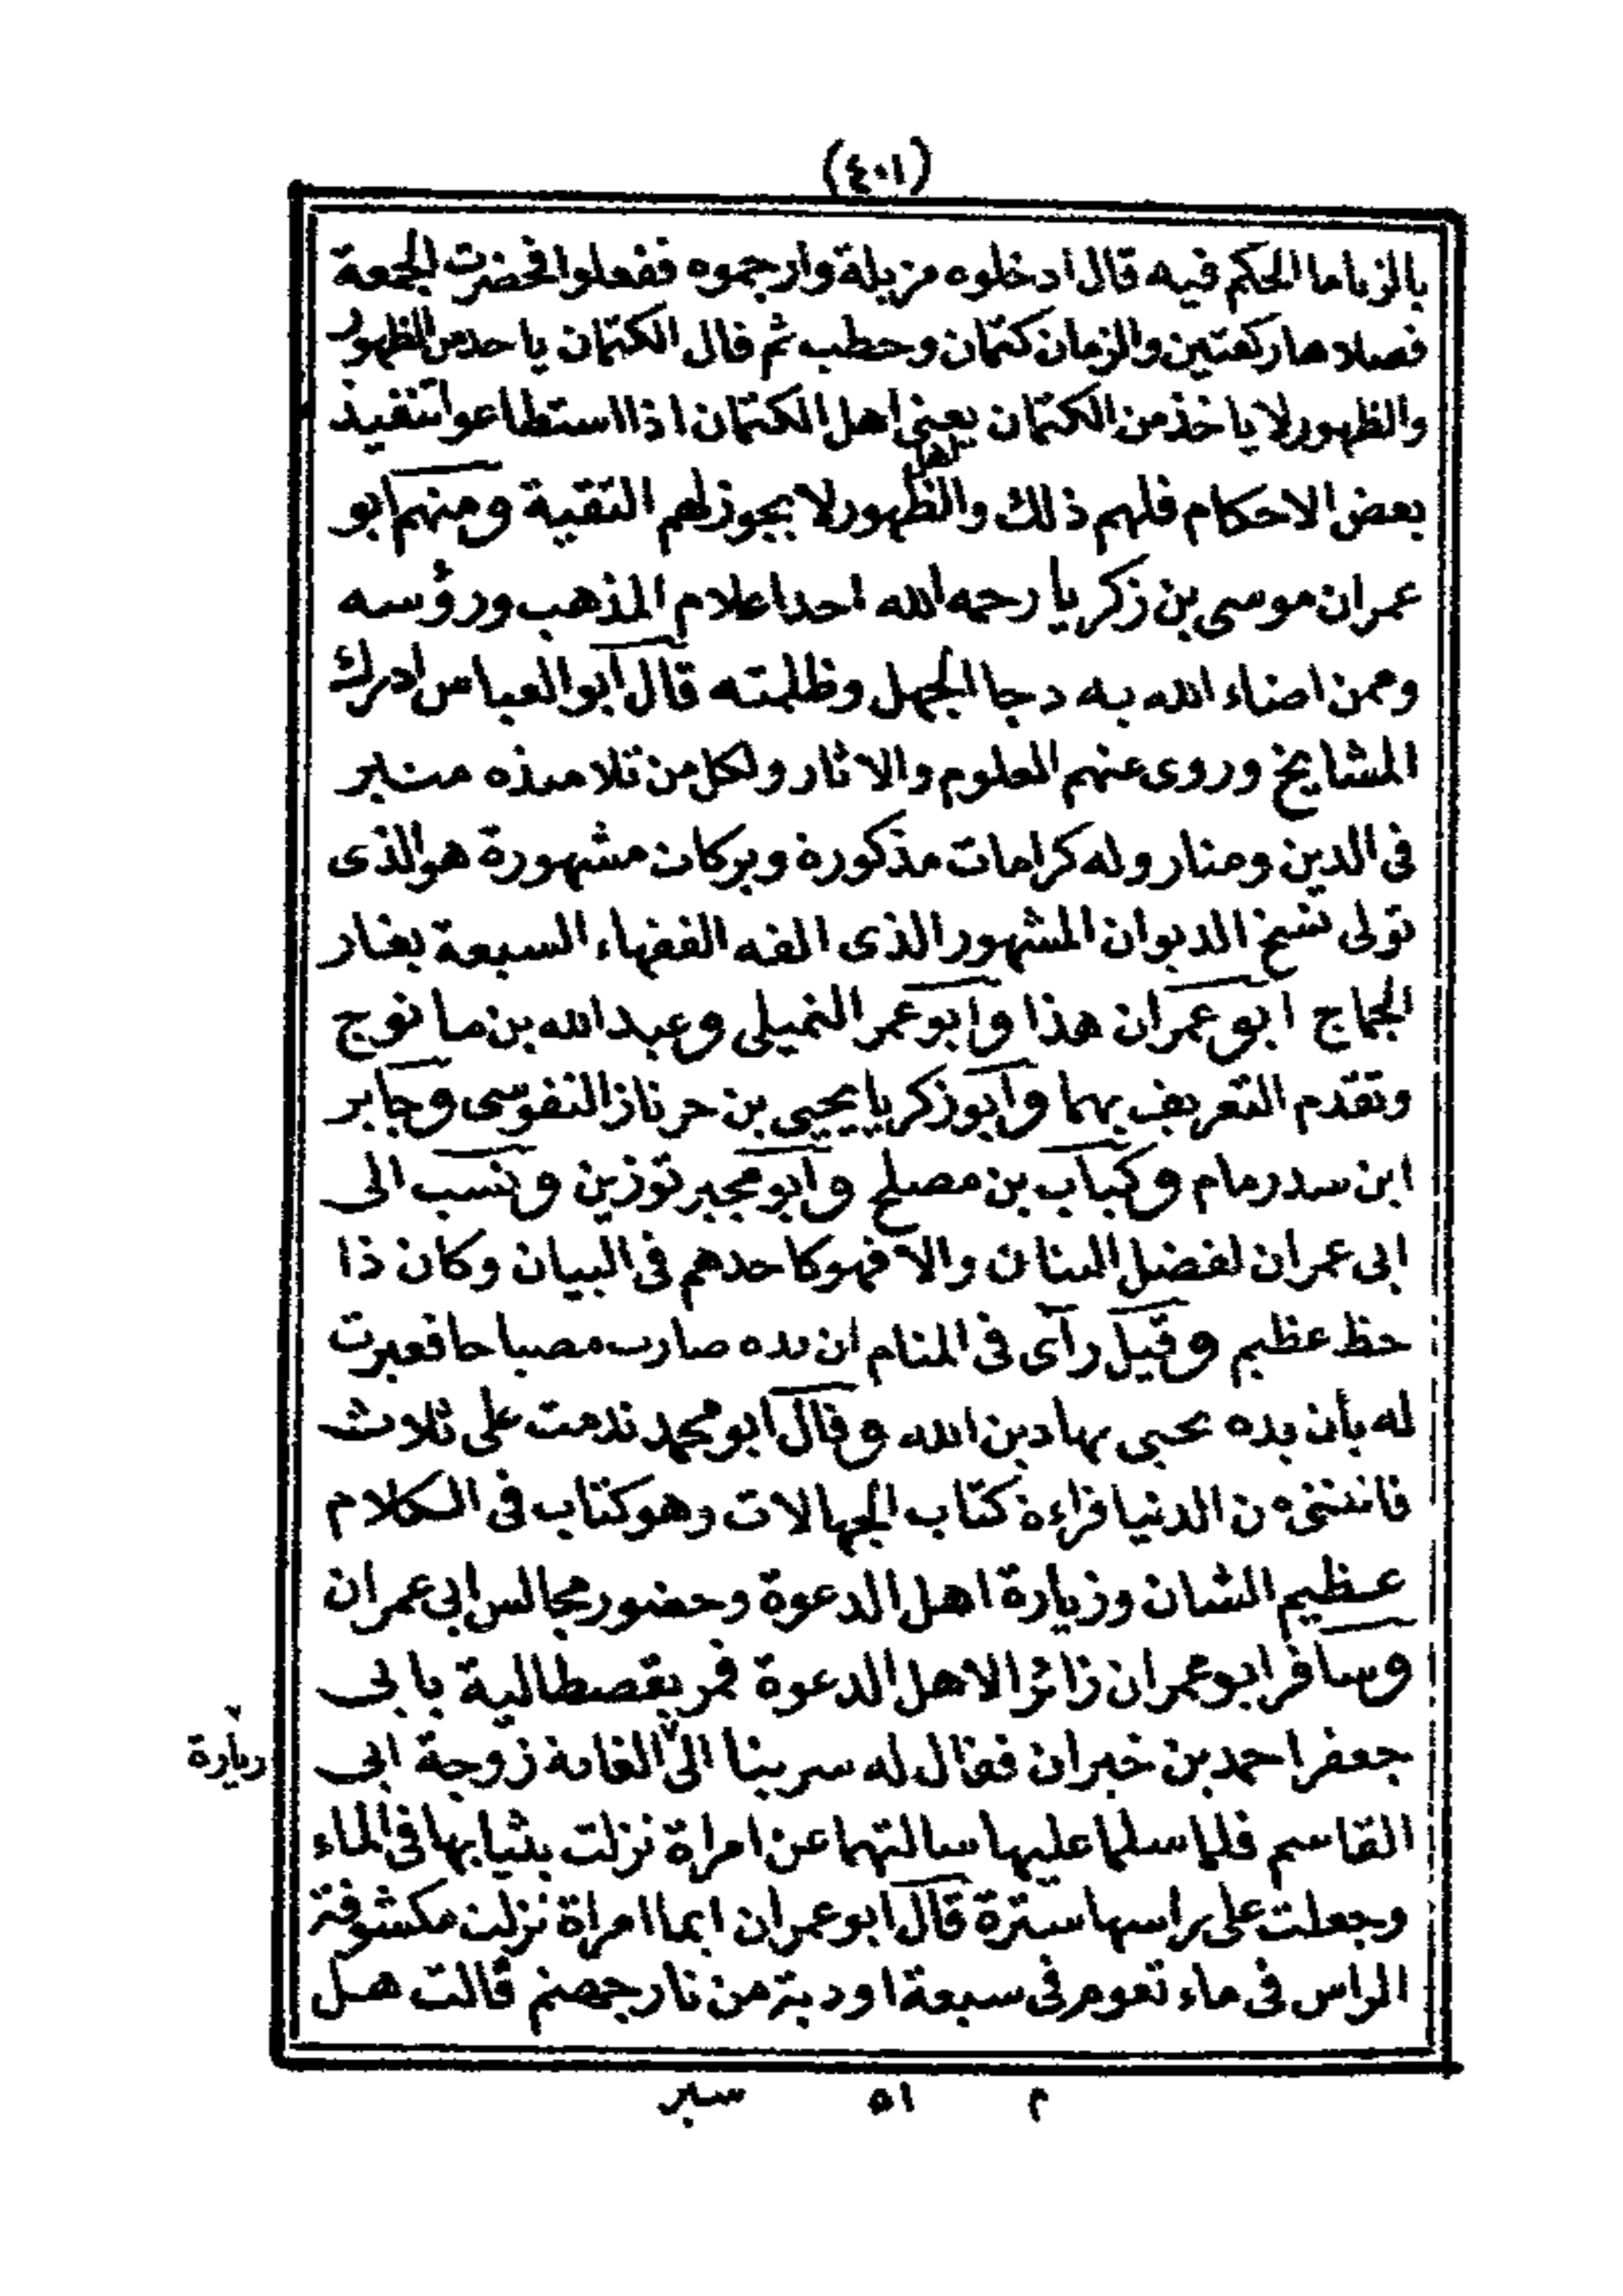 (٤٠١)
بالزنا ما الحكم فيه قال ادخلوه مزبلة وارجموه ففعلوا فحضرت الجمعة
فصلاها ركعتين والزمان كتمان وحطب ثم قال الكتمان ياخذ من الظهور
والظهور لا ياخذ من الكتمان يعنى اهل الكتمان اذا استطاعوا تنفيذ
اهل
بعض الاحكام فلهم ذلك والظهور لا يجوز لهم التقية ومنهم ابو
عمران موسى بن زكريا رحمه الله احد اعلام المذهب ورؤسه
وممن اضاء الله به دجا الجهل وظلمته قال ابو العباس ادرك
المشايخ وروى عنهم العلوم والاثار ولكل من تلامذه منبر
فى الدين ومنار وله كرامات مذكورة وبركات مشهورة هو الذى
تولى نسخ الديوان المشهور الذى الفه الفقهاء السبعة بغار
الجماج ابو عمران هذا وابو عمر النميلى وعبد الله بن مانوج
وتقدم التعريف بهما وابو زكريا يحيى بن جرناز النفوسى وجابر
ابن سدرمام وكباب بن مصلح وابو مجبر توزين ونسب الى
ابى عمران لفضل البنان والا فهو كاحدهم فى البيان وكان ذا
حظ عظيم وقيل رآى فى المنام ان يده صارت مصباحا فعبرت
له بأن يده يحيى بها دين الله وقال ابو محمد ندمت على ثلاث
فاتتنى من الدنيا قراءة كتاب الجهالات وهو كتاب فى الكلام
عظيم الشان وزيارة اهل الدعوة وحضور مجالس ابى عمران
وسافر ابو عمران زائرا لاهل الدعوة فمر بقصطالية بابى
جعفر احمد بن خيران فقال له سر بنا الى الغاية زوجة ابى
زيارة
القاسم فلما سلما عليها سالتهما عن امراة نزلت بثيابها فى الماء
وجعلت على راسها سترة قال ابو عمران ايما امراة نزلت مكشوفة
الراس فى ماء تعوم فى سبعة اودية من نار جهنم قالت هل
م ٥١ سير